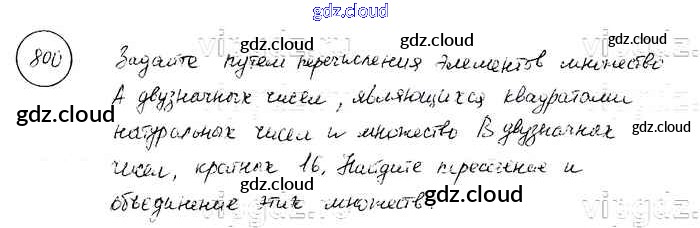 gdz.cloud
800
Задайте путем перечисления элементов множество
gdz.cloud gdz.cloud
А двузначных чисел, являющихся квадратами
gdz.cloud gdz.cloud gdz.cloud
натуральных чисел и множество В двузначных
чисел, кратных 16. Найдите пересечение и
gdz.cloud gdz.cloud gdz.cloud
объединение этих множеств.